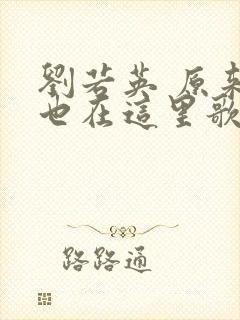 劉若英 原來
也在這里歌
路路通